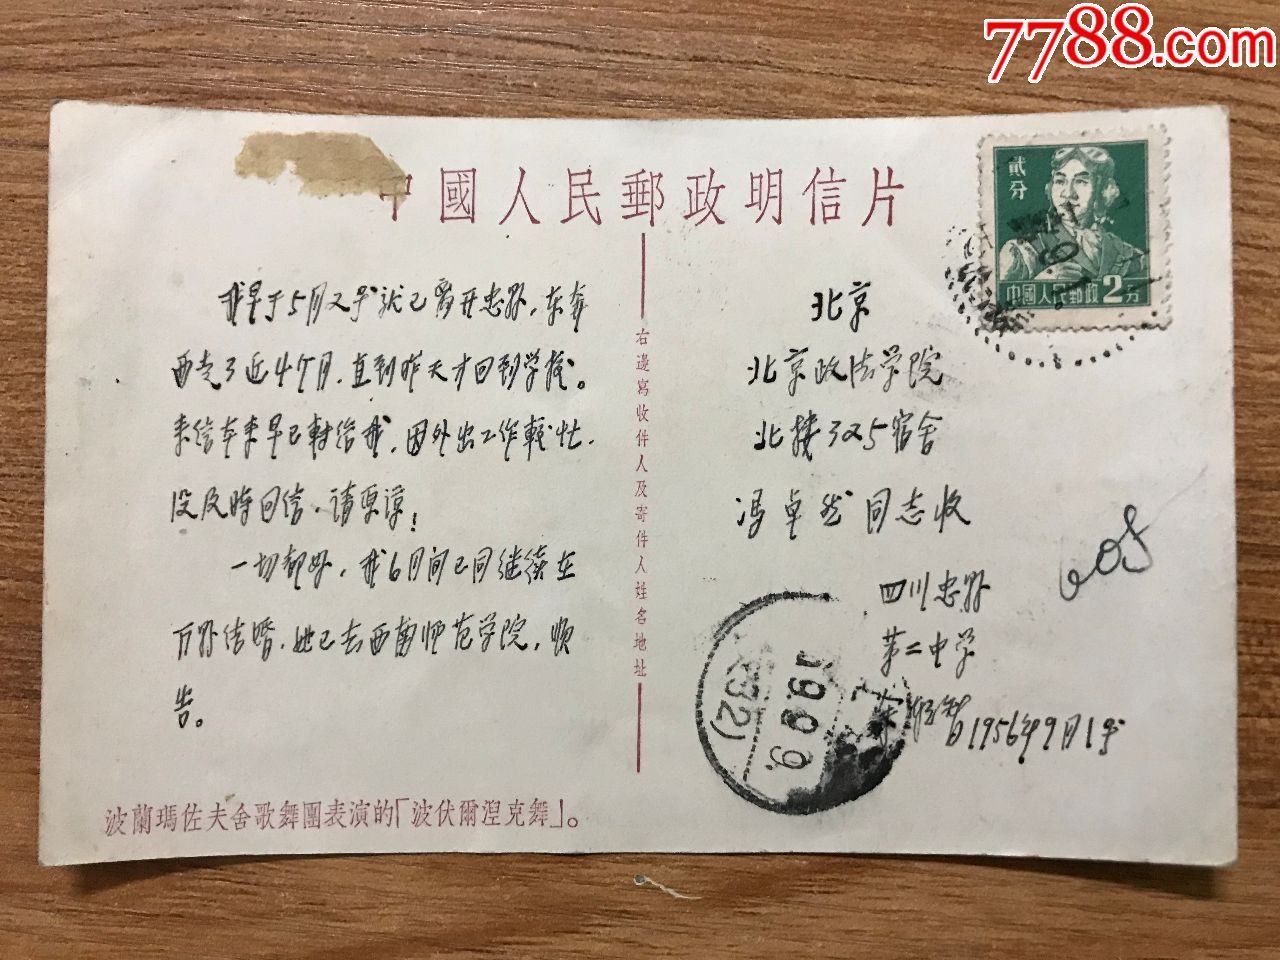 7788.com
中國人民郵政明信片
貳分
中國人民郵政 2分
我早于5月2号就已离开忠县，东奔
西走了近4个月，直到昨天才回到学校。
来信本来早已转给我，因外出工作较忙，
没及时回信，请原谅！
一切都好，我6月间已同继续在
万县结婚，她已去西南师范学院，顺
告。
波蘭瑪佐夫舍歌舞團表演的「波伏爾涅克舞」。
右邊寫收件人及寄件人姓名地址
北京
北京政法学院
北楼325宿舍
冯卓然同志收
608
四川忠县
第二中学
1956年9月1号
19.9.9
(32)